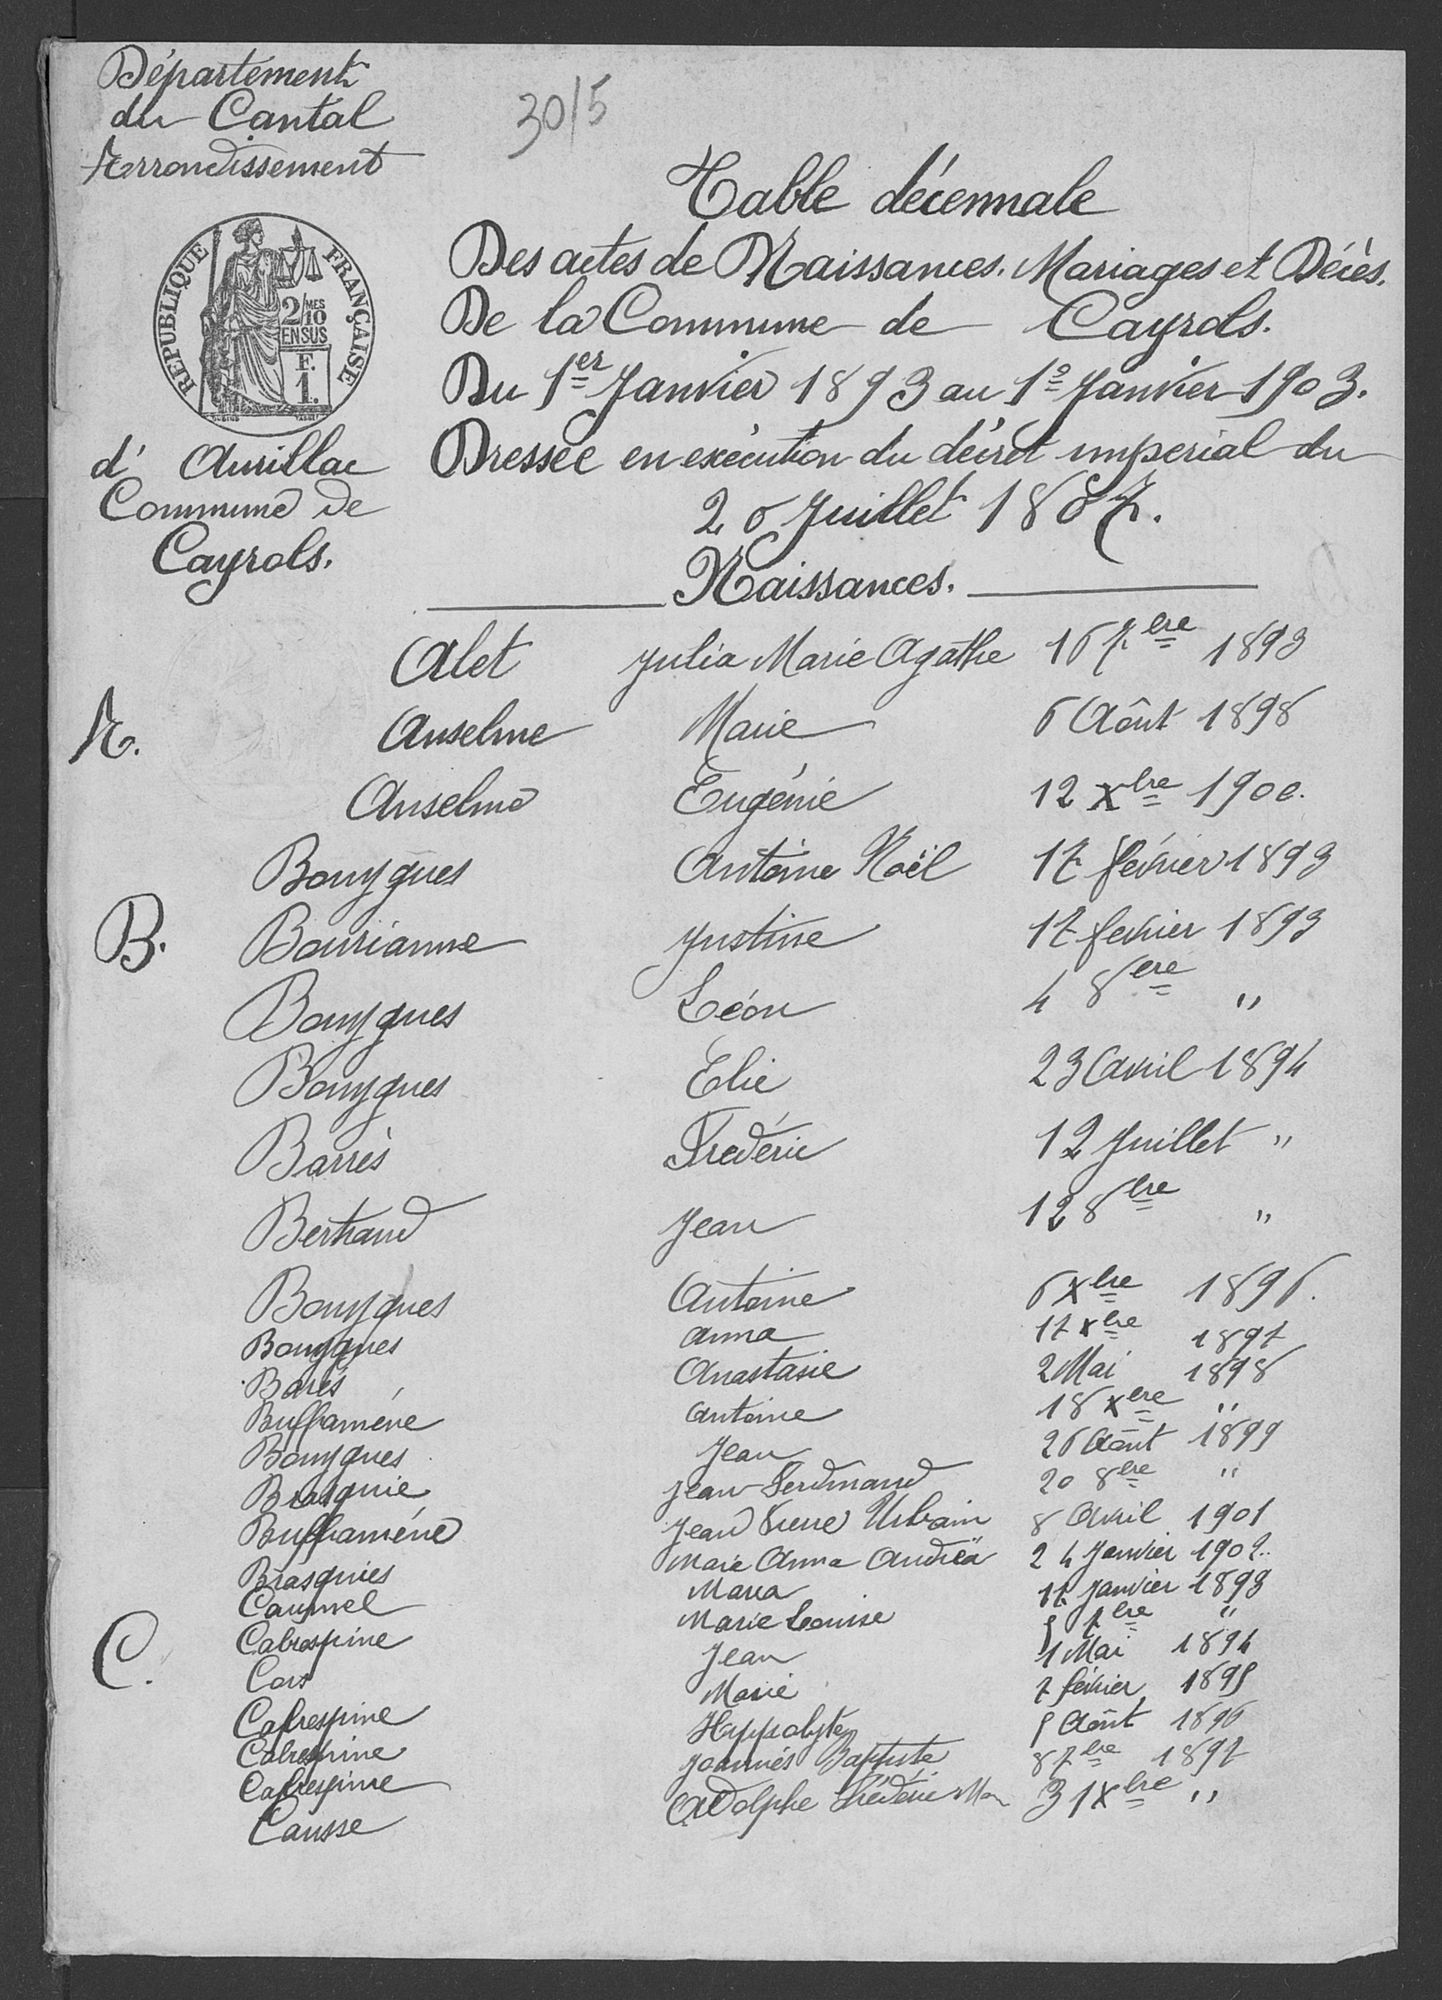 Département
du Cantal
Arrondissement
30/5
RÉPUBLIQUE FRANÇAISE
2/10 MES
EN SUS
F.
1.
d' Aurillac
Commune de
Cayrols.
Table décennale
Des actes de Naissances. Mariages et Décès.
De la Commune de Cayrols.
Du 1er Janvier 1893 au 1o Janvier 1903.
Dressée en exécution du décret impérial du
20 Juillet 1807.
Naissances.
Alet Julia Marie Agathe 16 7bre 1893
A. Anselme Marie 6 Août 1898
Anselme Eugénie 12 Xbre 1900.
Bouygues Antoine Noël 17 février 1893
B. Bourianne Justine 17 février 1893
Bouygues Léon 4 8bre "
Bouygues Elie 23 Avril 1894
Barrès Frédéric 12 Juillet "
Bertrand Jean 12 8bre "
Bouygues Antoine 6 Xbre 1896.
Bouygues Anna 17 Xbre 1897
Barès Anastasie 2 Mai 1898
Buffamène Antoine 18 Xbre "
Bouygues Jean 26 Août 1899
Brasquie Jean Ferdinand 20 8bre "
Buffamène Jean Pierre Urbain 8 Avril 1901
Brasquies Marie Anna Andréa 24 Janvier 1902.
Caumel Maria 17 Janvier 1893
C. Cabrespine Marie Louise 5 7bre "
Cors Jean 1 Mai 1894
Cabrespine Marie 7 février 1895
Cabrespine Hyppolyte 5 Août 1896
Cabrespine Joannès Baptiste 8 7bre 1897
Causse Adolphe Frédéric 31 Xbre "